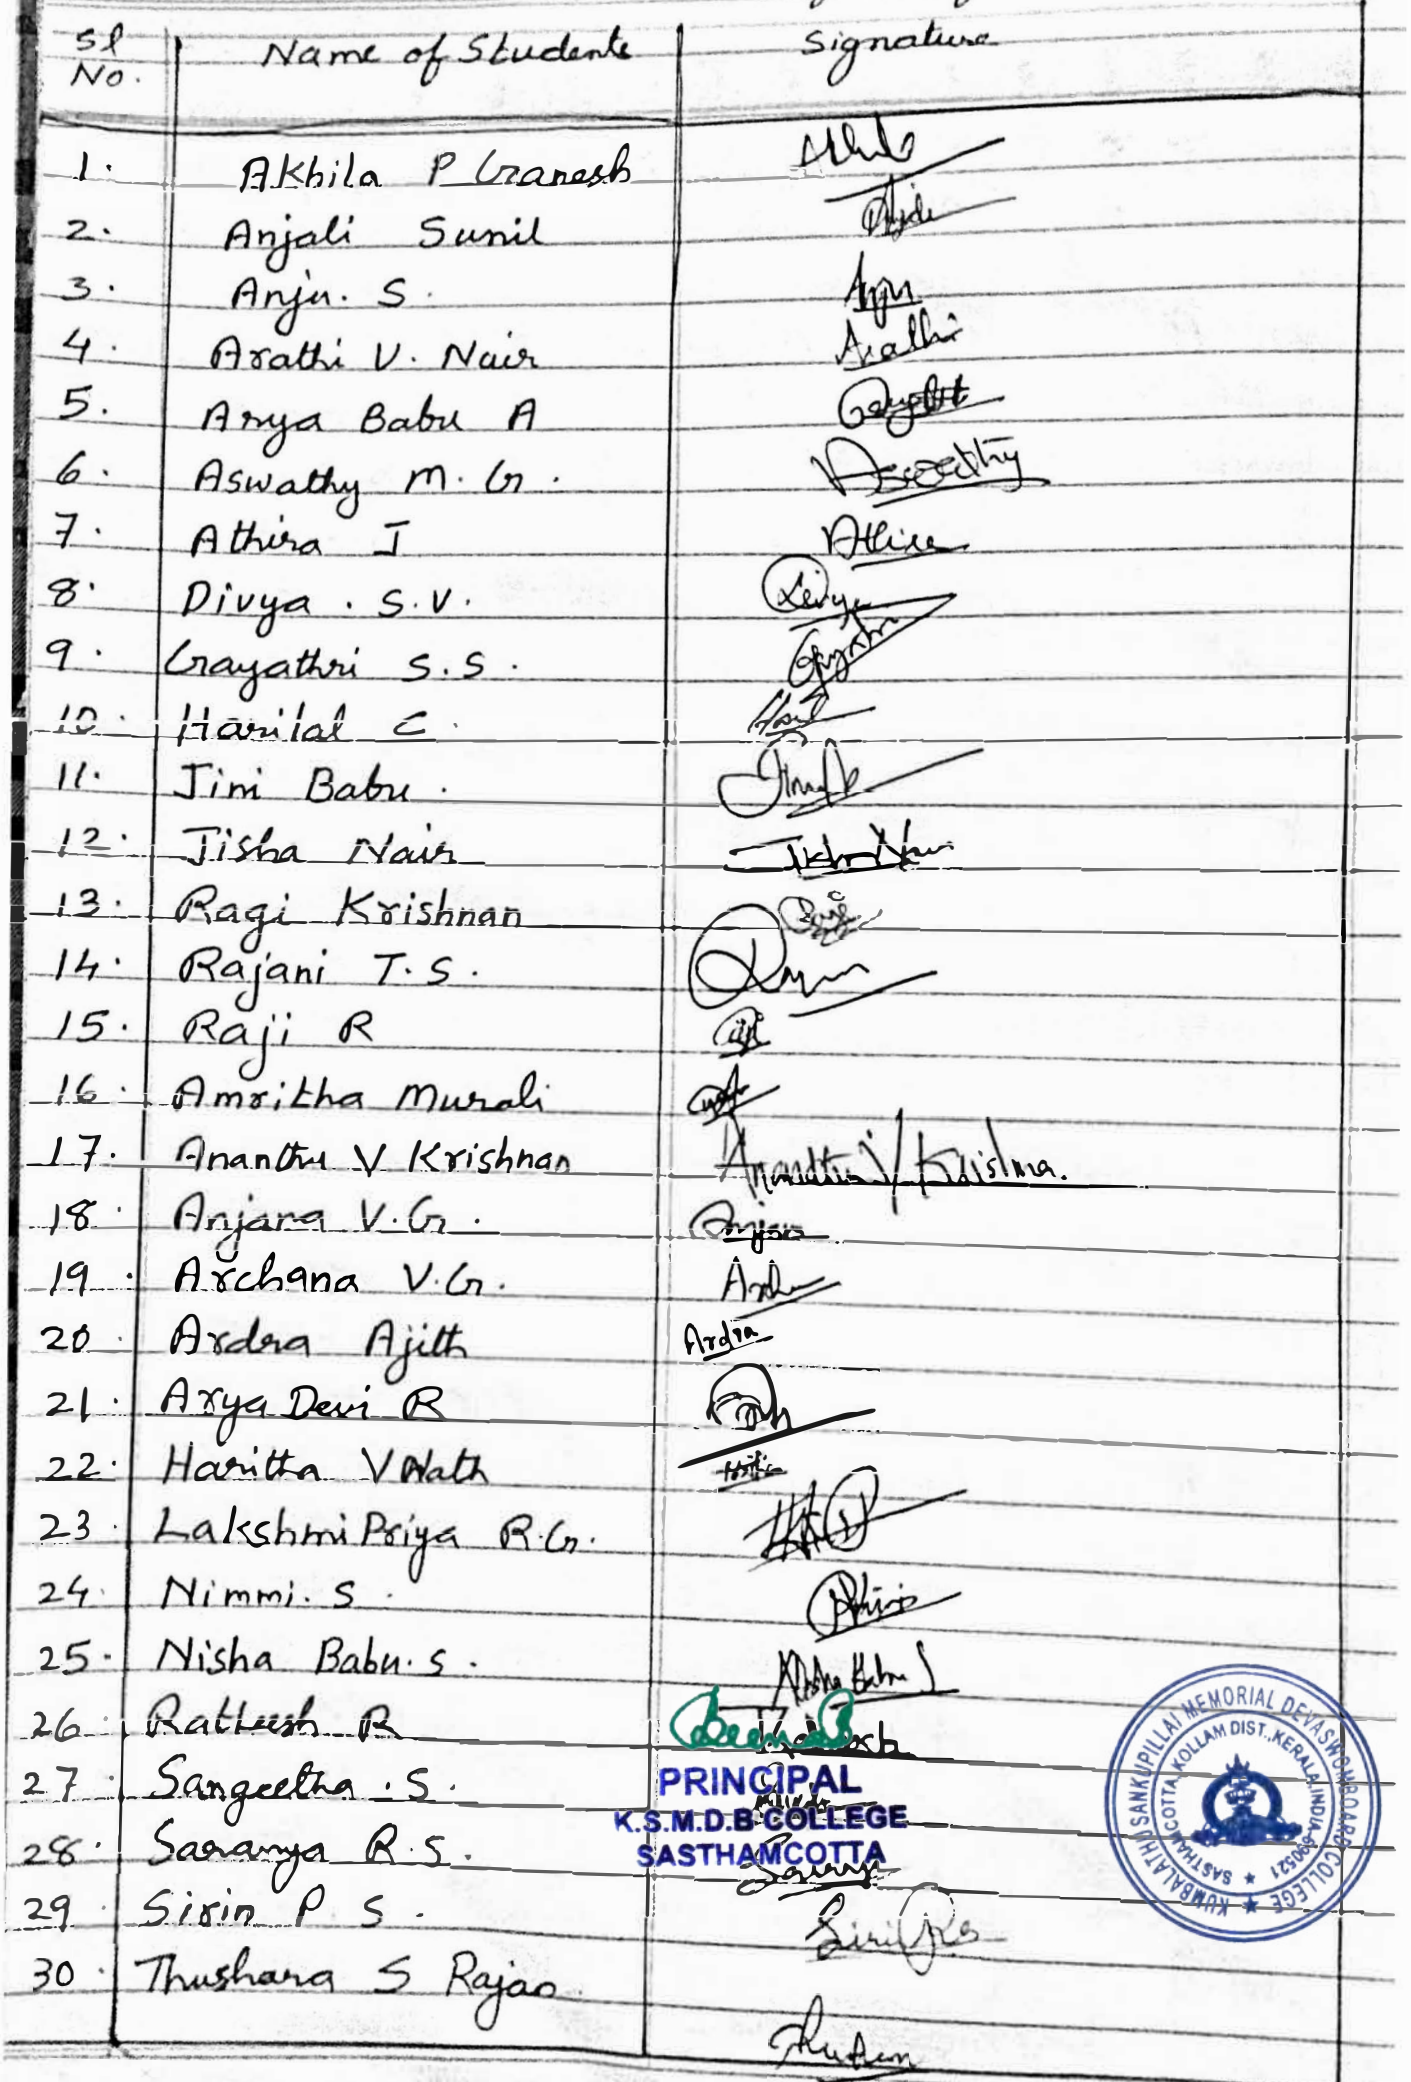 Sl No. Name of Students Signature
1. Akhila P Ganesh
2. Anjali Sunil
3. Anju. S. Anju
4. Arathi V. Nair Arathi
5. Arya Babu A
6. Aswathy M. G. Aswathy
7. Athira J Athira
8. Divya . S.V. Divya
9. Gayathri S.S.
10. Harilal C.
11. Jini Babu.
12. Jisha Nair
13. Ragi Krishnan
14. Rajani T.S.
15. Raji R
16. Amritha Murali
17. Ananthu V Krishnan Ananthu V Krishna.
18. Anjana V.G. Anjana
19. Archana V.G.
20. Ardra Ajith Ardra
21. Arya Devi R
22. Haritha V Nath
23. LakshmiPriya R.G.
24. Nimmi. S.
25. Nisha Babu.S. Nisha Babu S
26. Ratheesh R
27. Sangeetha .S.
PRINCIPAL
K.S.M.D.B COLLEGE
SASTHAMCOTTA
28. Saranya R.S.
29. Sirin P S.
30. Thushara S Rajan
KUMBALATHU SANKUPILLAI MEMORIAL DEVASWOM BOARD COLLEGE
SASTHAMCOTTA, KOLLAM DIST., KERALA, INDIA-690521